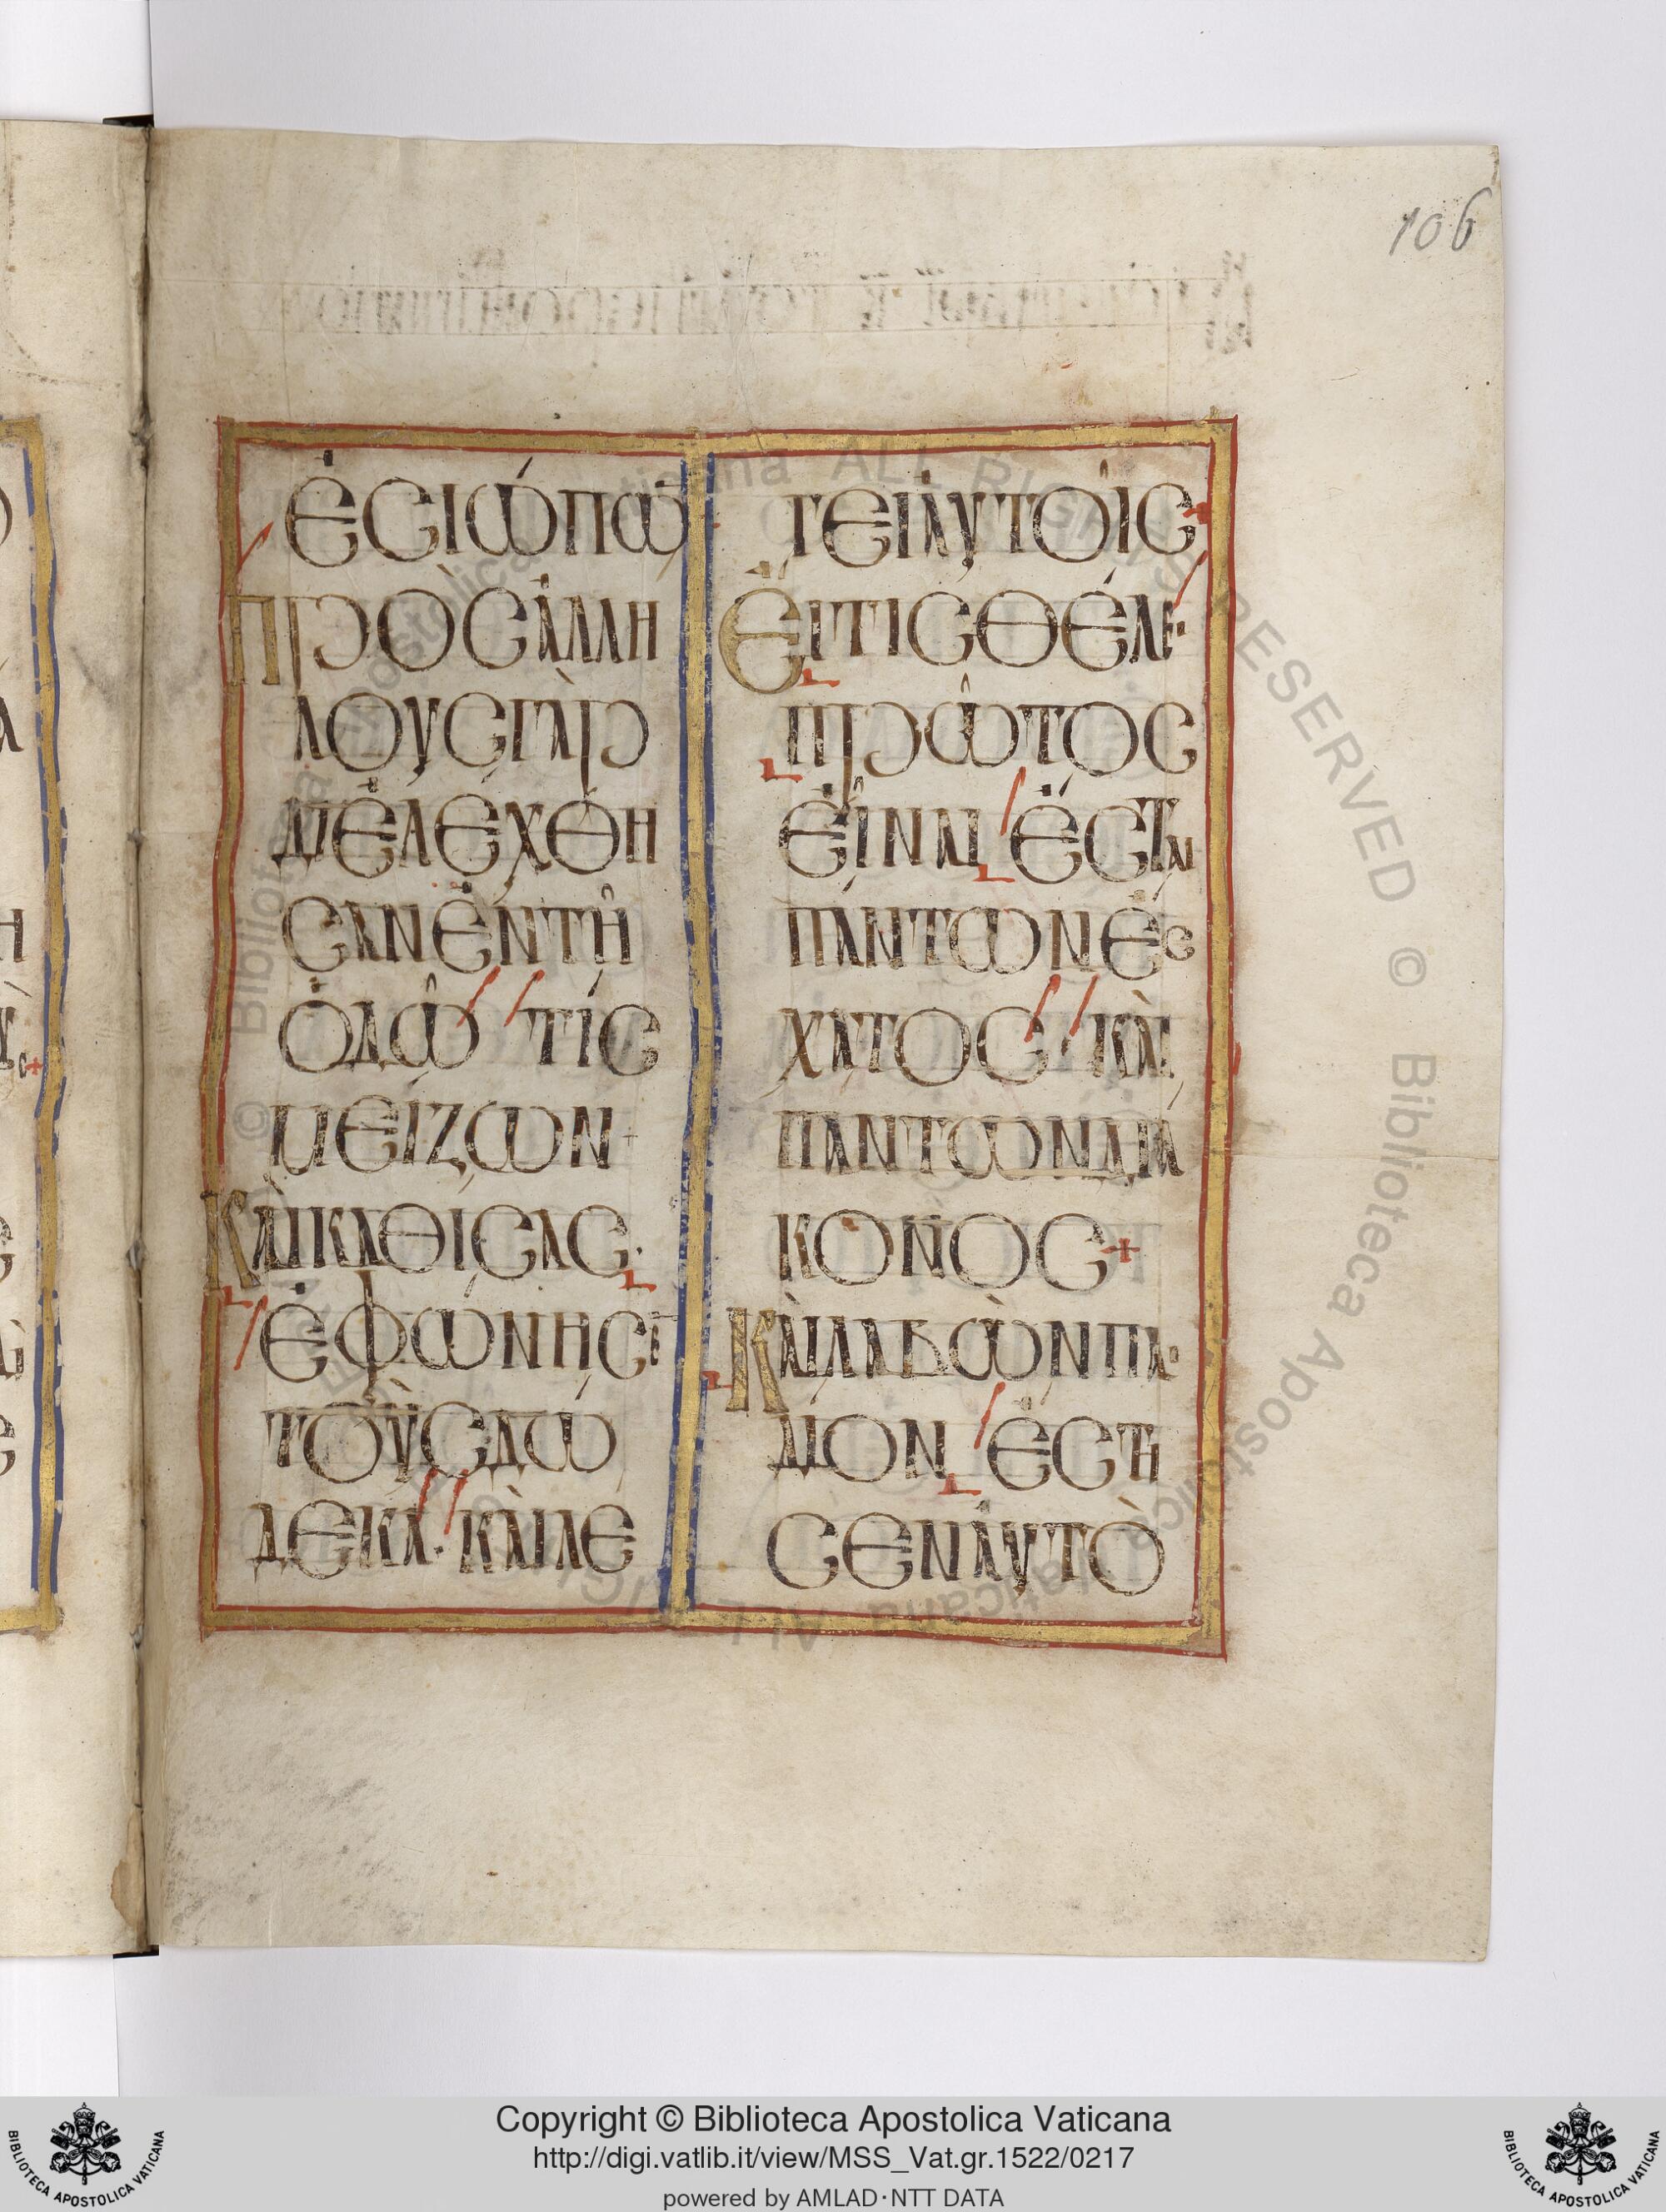 106
ἐσιώπω
προσἀλλή
λουσγὰρ
διελέχθη
σανἐντῇ
ὁδῶ τίς
μείζων
Καὶκαθίσας·
ἐφώνησε
τοὺςδώ
δεκα· καὶλέ
γειἀυτοῖς+
Ἔιτισθέλει
πρῶτος
ἔιναι ἔσται
πάντωνἔσ
χατος καὶ
πάντωνδιά
κονος+
Καὶλαβὼνπαι
δίον ἔστη
σεναυτὸ
Copyright © Biblioteca Apostolica Vaticana
http://digi.vatlib.it/view/MSS_Vat.gr.1522/0217
powered by AMLAD·NTT DATA
BIBLIOTECA APOSTOLICA VATICANA
BIBLIOTECA APOSTOLICA VATICANA